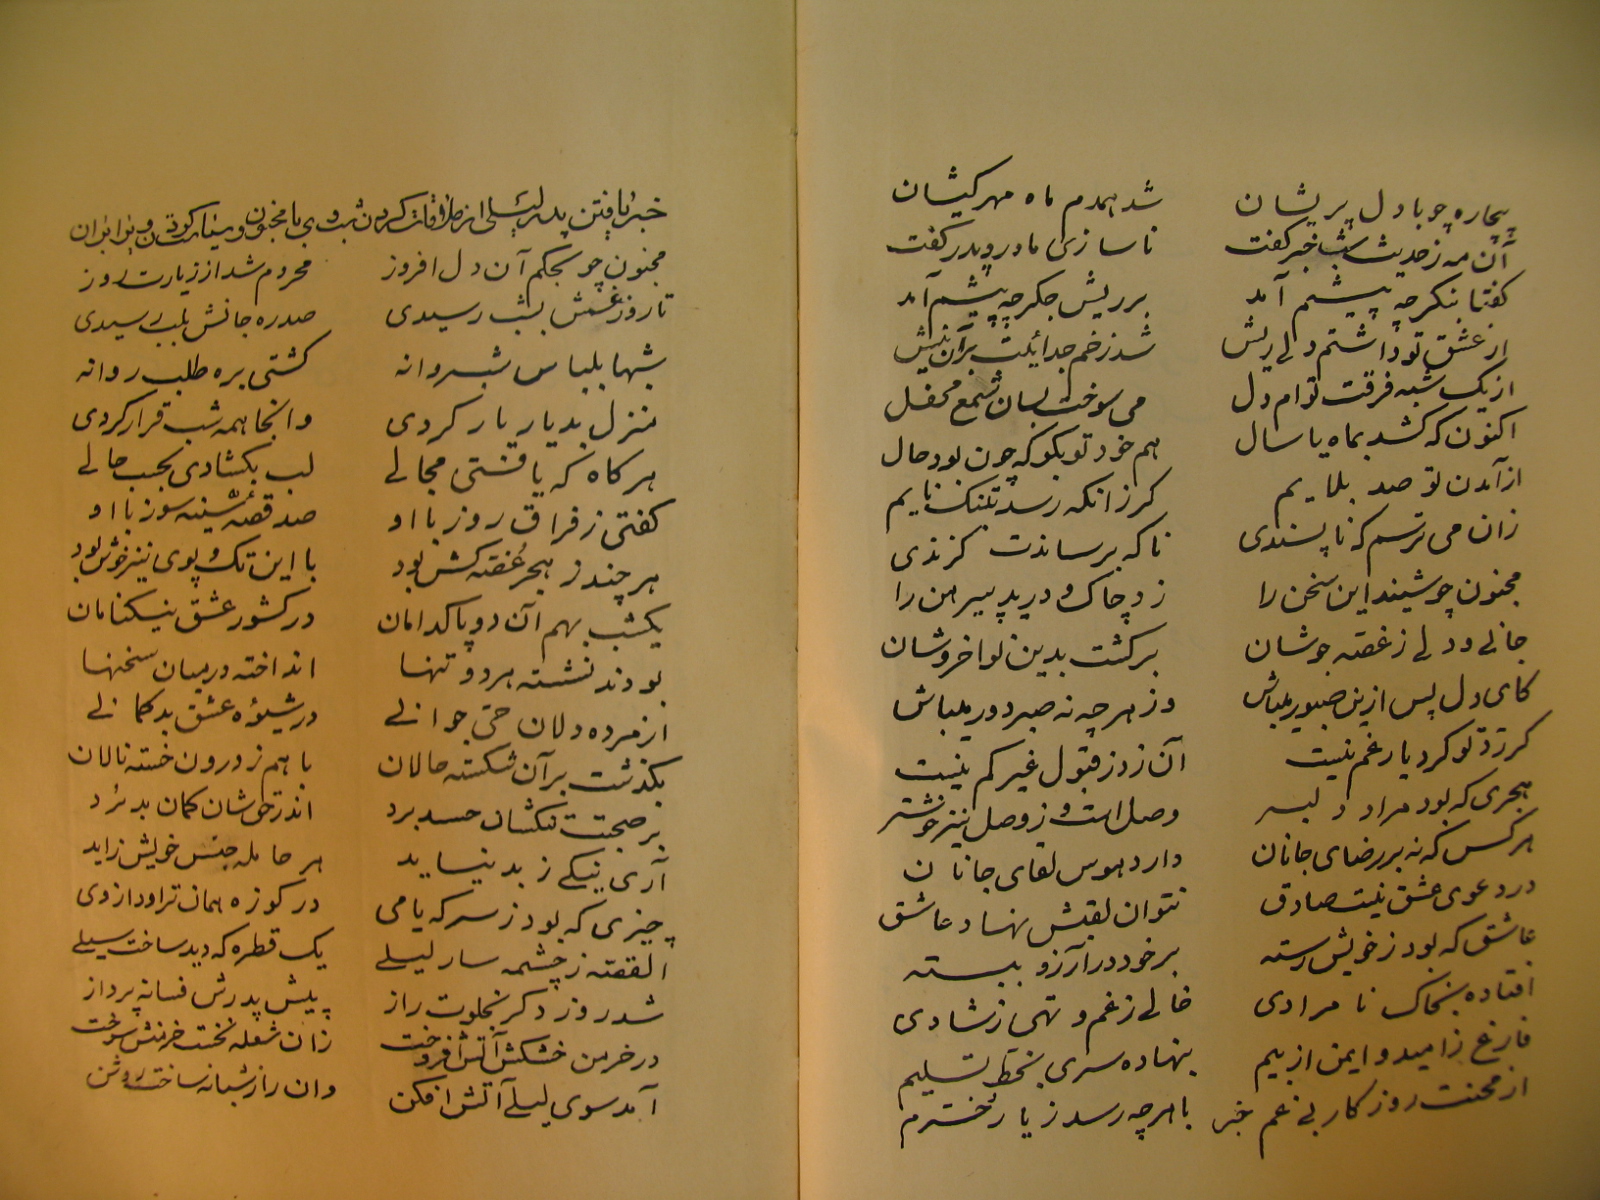 بیچاره چو با دل پریشان شد همدم ماه مهر کیشان
آن مه ز حدیث شب خبر گفت ناسازی مادر و پدر گفت
گفتا بنگر چه پیشم آمد بر ریش جگر چه نیشم آمد
از عشق تو داشتم دلی ریش شد زخم جدائیت بر آن نیش
از یک شبه فرقت توام دل می سوخت بسان شمع محفل
اکنون که کشد بماه یا سال هم خود تو بگو که چون بود حال
از آمدن تو صد بلایم گر زانکه رسد به تنگ نایم
زان می ترسم که ناپسندی ناگه برساندت گزندی
مجنون چو شنید این سخن را زد چاک و درید پیرهن را
جانی و دلی ز غصه جوشان برگشت بدین نوا خروشان
کای دل پس ازین صبور میباش وز هر چه نه صبر دور میباش
گر زد تو کرد یار غم نیست آن زد ز قبول غیر کم نیست
هجری که بود مراد دلبر وصل است و ز وصل نیز خوشتر
هر کس که نه بر رضای جانان دارد هوس لقای جانان
در دعوی عشق نیست صادق نتوان لقبش نهاد عاشق
عاشق که بود ز خویش رسته بر خود در آرزو ببسته
افتاده بخاک نامرادی خالی ز غم و تهی ز شادی
فارغ ز امید و ایمن از بیم بنهاده سری بخط تسلیم
از محنت روزگار بی غم خبر با هرچه رسد ز یار خرم
خبر یافتن پدر لیلی از ملاقات کردن شب وی با مجنون و سیاست کردن وی را بر آن
مجنون چو بحکم آن دل افروز محروم شد از زیارت روز
تا روز غمش بشب رسیدی صد ره جانش بلب رسیدی
شبها بلباس شبروانه گشتی بره طلب روانه
منزل بدیار یار کردی وانجا همه شب قرار کردی
هر گاه که یافتی مجالی لب بگشادی بحسب حالی
گفتی ز فراق روز با او صد قصهٔ سینه سوز با او
هر چند ز هجر غصه کش بود با این تک و پوی نیز خوش بود
یکشب بهم آن دو پاکدامان در کشور عشق نیکنامان
بودند نشسته هر دو تنها انداخته در میان سخنها
از مرده دلان حی جوانی در شیوهٔ عشق بدگمانی
بگذشت بر آن شکسته حالان با هم ز درون خسته نالان
بر صحبت تنگشان حسد برد اندر حق شان گمان بد برد
آری نیکی ز بد نیاید هر حامله جنس خویش زاید
چیزی که بود ز سرکه یا می در کوزه همان تراود از وی
القصه ز چشمه سار لیلی یک قطره که دید ساخت سیلی
شد روز دگر بخلوت راز پیش پدرش فسانه پرداز
در خرمن خشکش آتش افروخت زان شعله نخست خرمنش سوخت
آمد سوی لیلی آتش افکن وان راز شبانه ساخت روشن